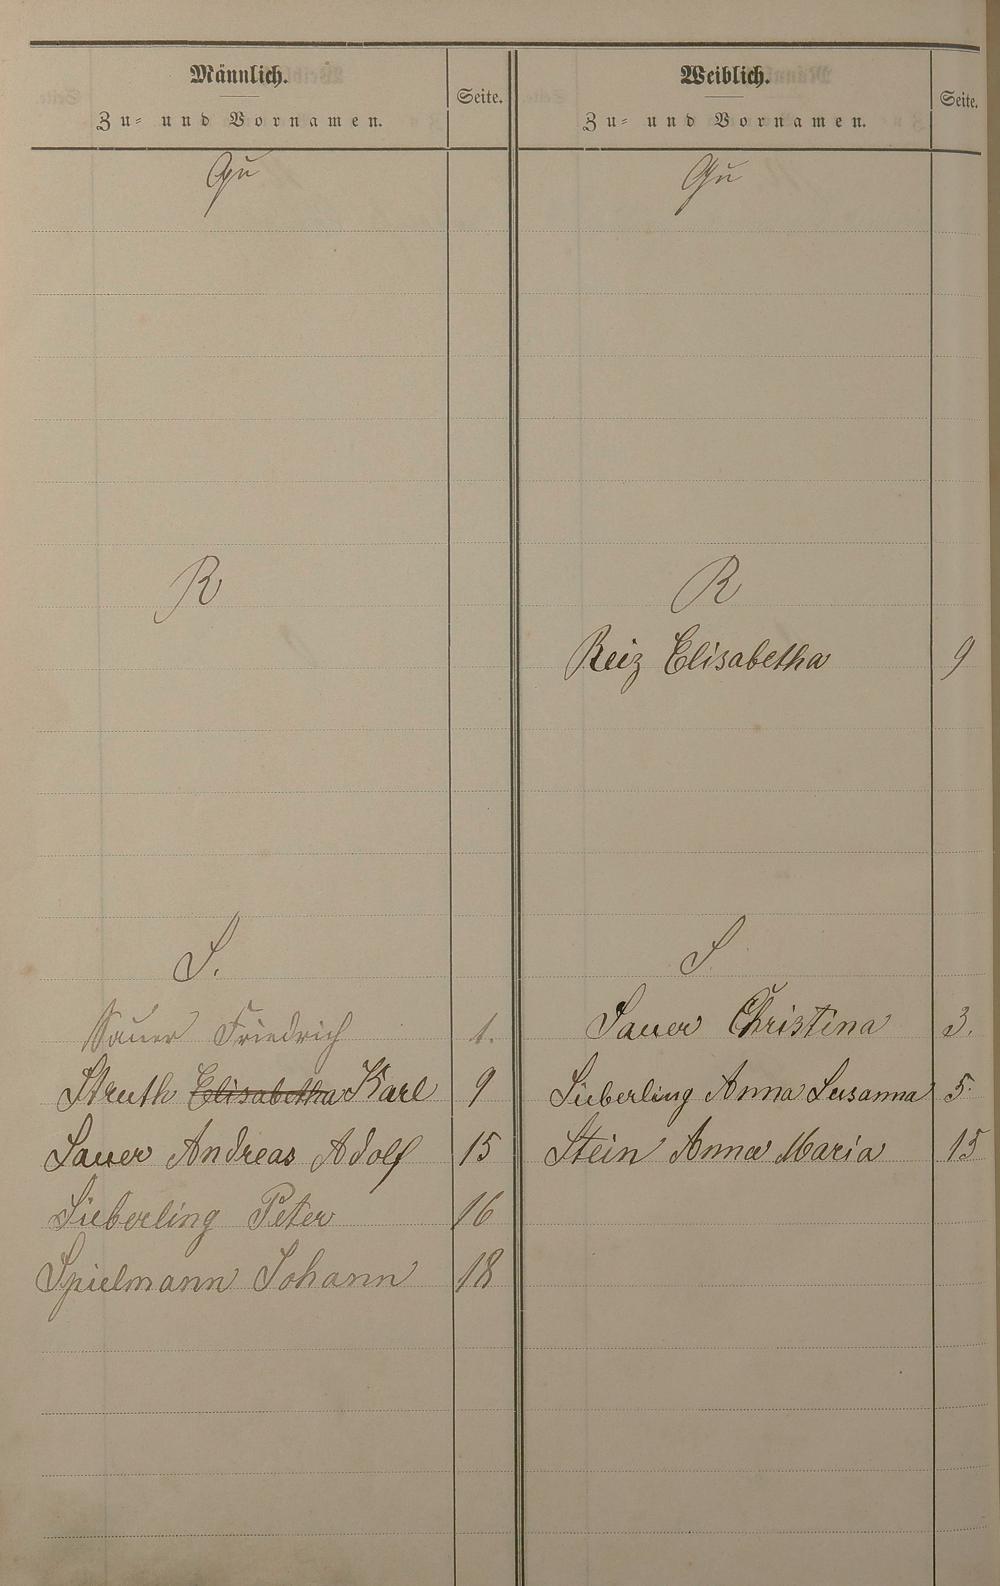 Männlich.
Zu- und Vornamen.
Seite.
Qu
R
S.
Sauer Friedrich 1.
Struth Elisabetha Karl 9
Sauer Andreas Adolf 15
Sieberling Peter 16
Spielmann Johann 18
Weiblich.
Zu- und Vornamen.
Seite.
Qu
R
Reiz Elisabetha 9
S
Sauer Christina 3.
Sieberling Anna Susanna 5.
Stein Anna Maria 15